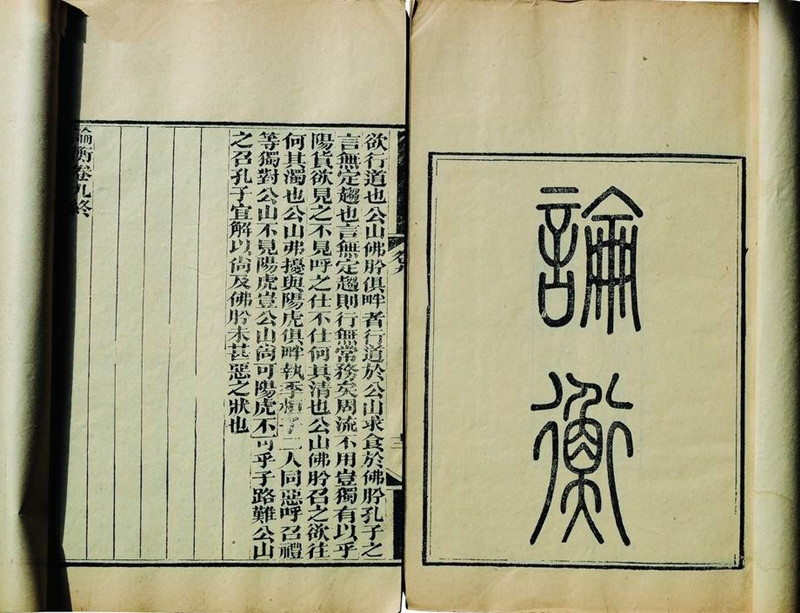 論衡
欲行道也公山佛肸俱畔者行道於公山求食於佛肸孔子之
言無定趨也言無定趨則行無常務矣周流不用豈獨有以乎
陽貨欲見之不見呼之仕不仕何其清也公山佛肸召之欲往
何其濁也公山弗擾與陽虎俱畔執季桓子二人同惡呼召禮
等獨對公山不見陽虎豈公山尙可陽虎不可乎子路難公山
之召孔子宜解以尙及佛肸未甚惡之狀也
論衡卷九終